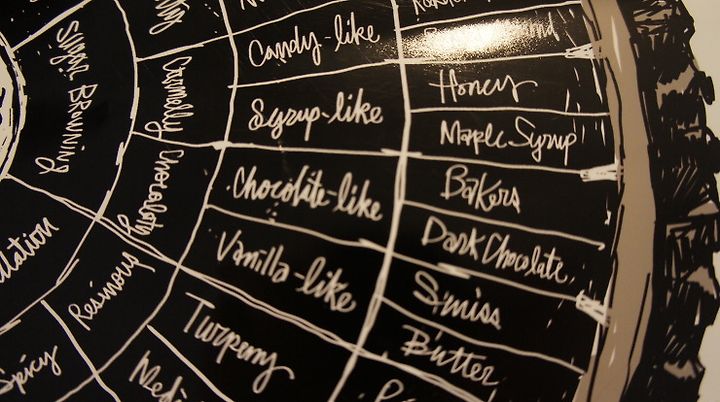 Sugar Browning
Carmelly
Chocolaty
Candy-like
Syrup-like
Honey
Maple Syrup
Chocolate-like
Bakers
Dark Chocolate
Vanilla-like
Swiss
Butter
Resinous
Turpeny
Spicy